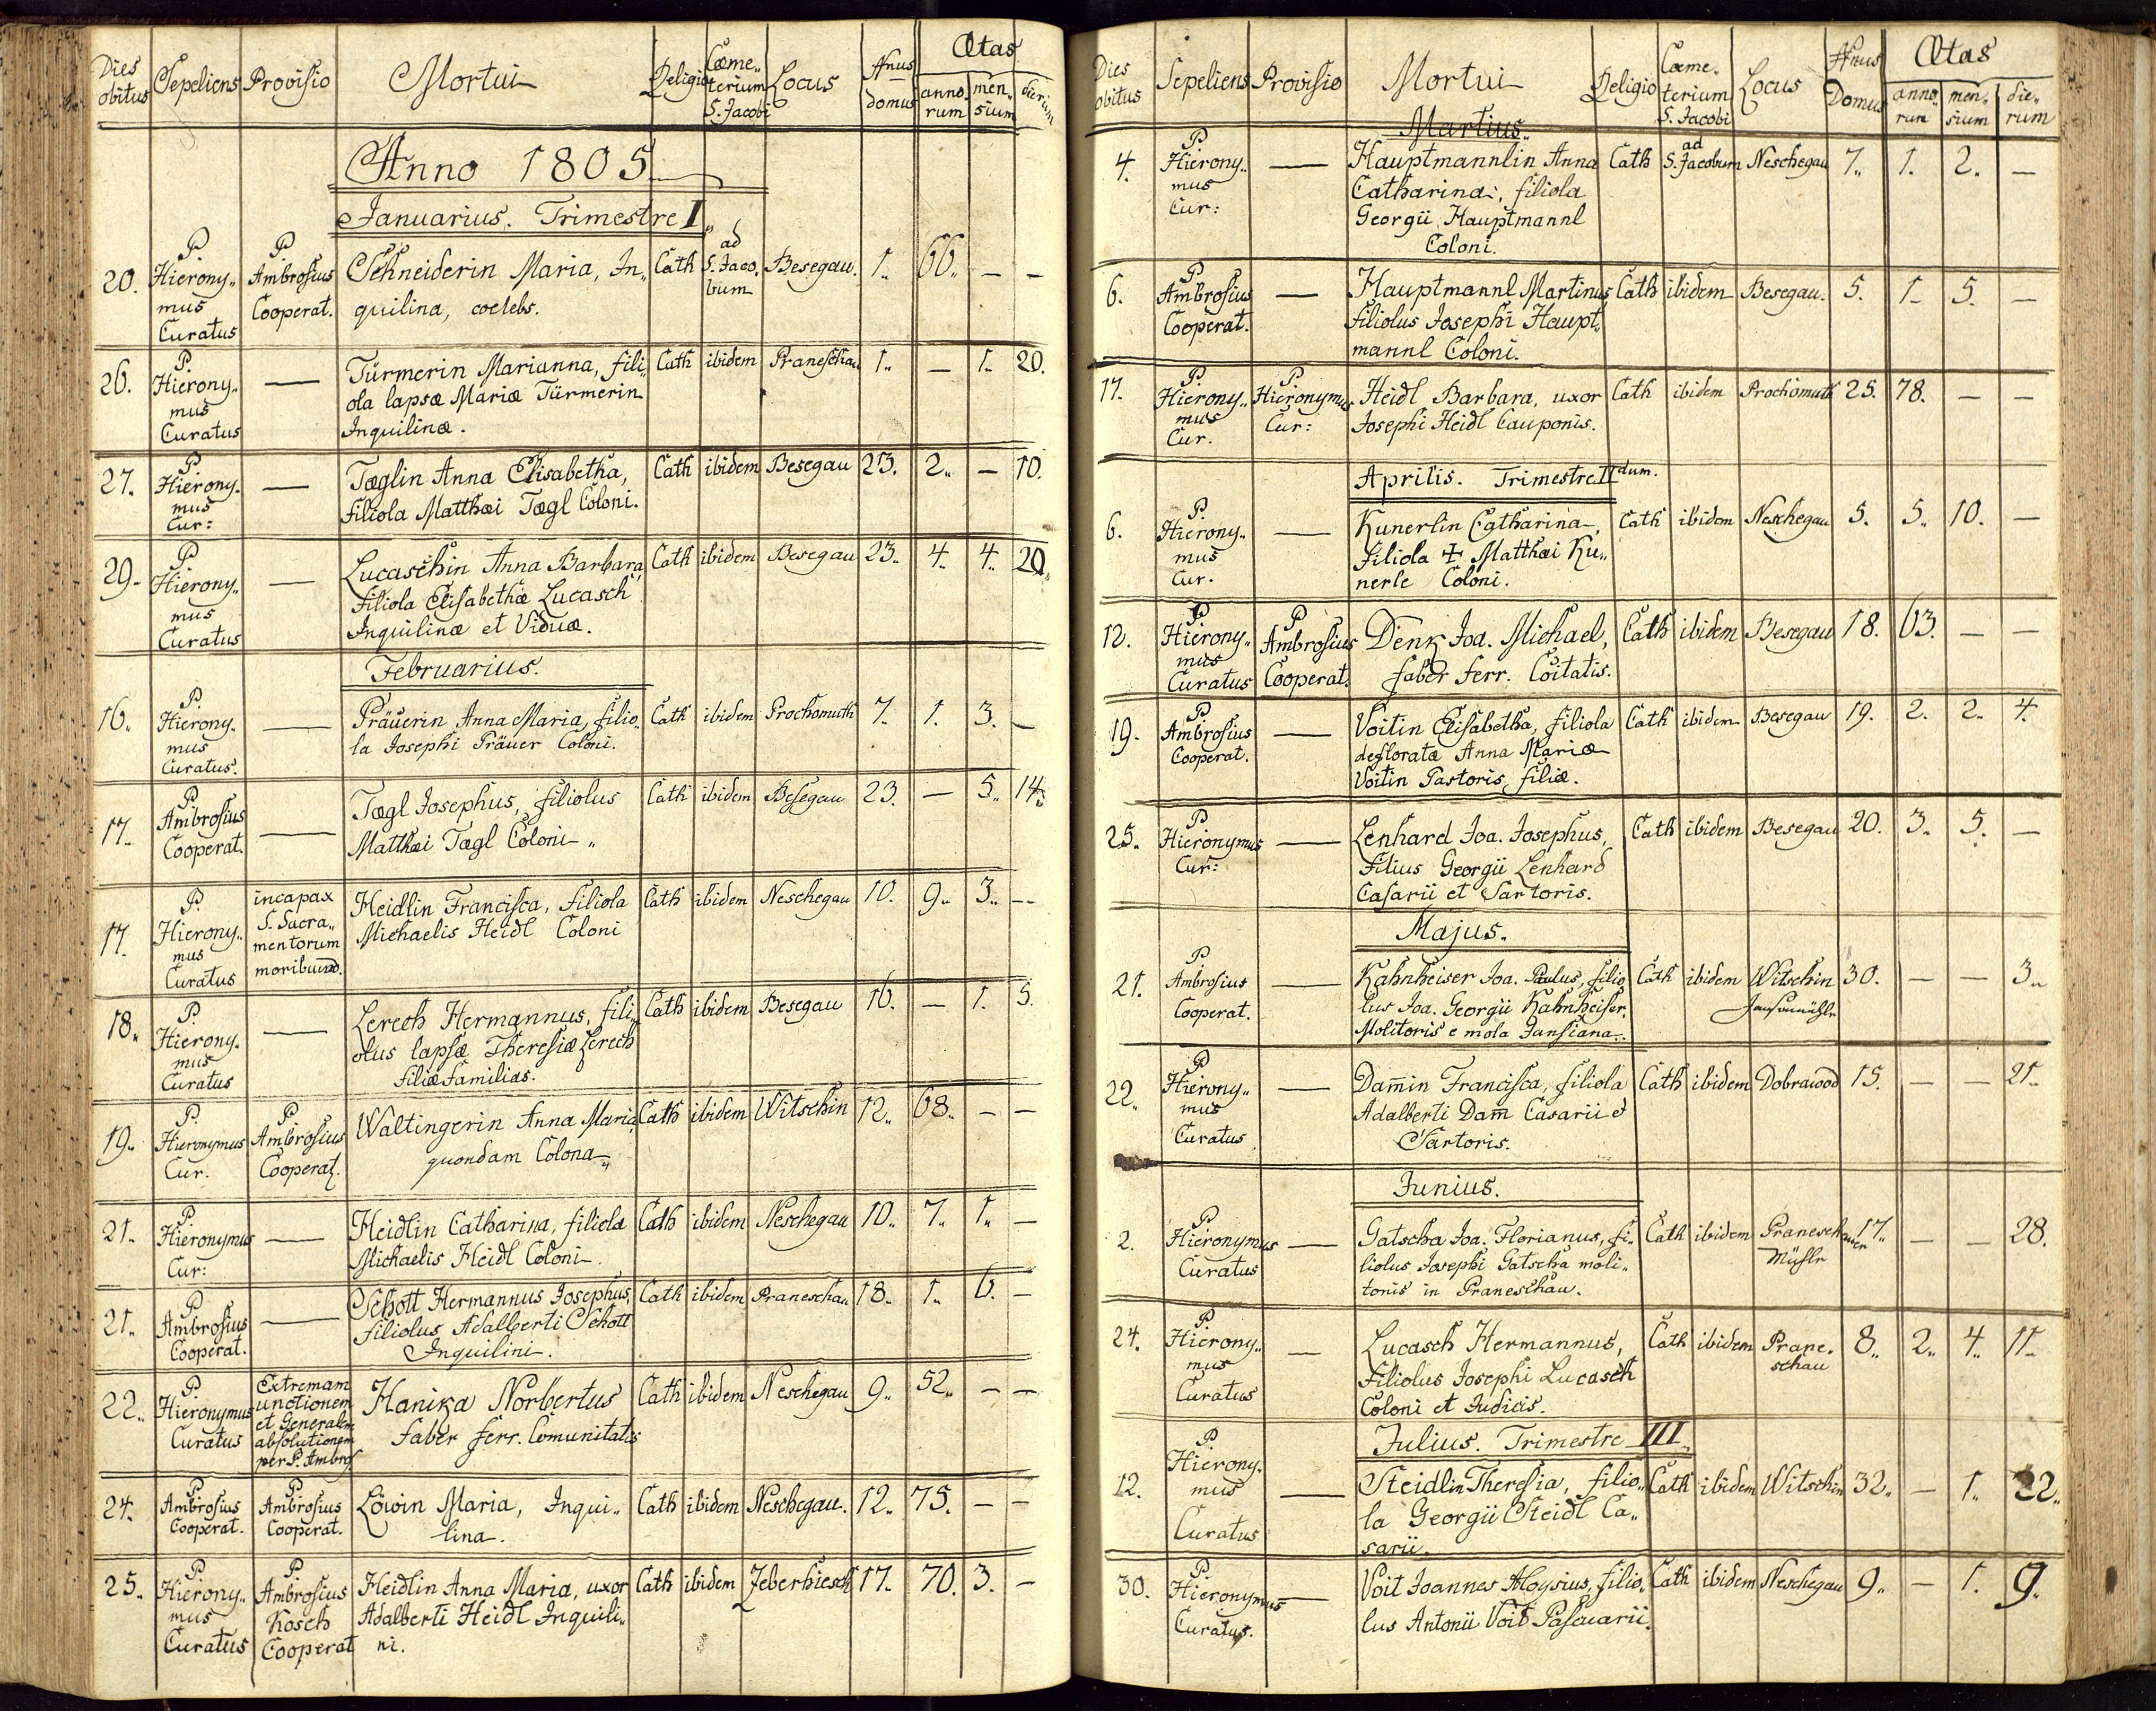 Dies obitus Sepeliens Provisio Mortui Religio Cœme„terium S. Jacobi Locus Nnus domus Ætas annorum mensium dierum
Anno 1805
Januarius. Trimestre I„
20. P. Hierony„ P. Ambrosius Schneiderin Maria, In„ Cath ad S. Jaco„ Besegau. 1„ 66„ — —
mus Cooperat. quilina, coelebs. bum
Curatus
26. P. Hierony„ — Türmerin Marianna, fili„ Cath ibidem Praneschau 1„ — 1„ 20.
mus ola lapsæ Mariæ Türmerin
Curatus Inquilinæ.
27. P. Hierony. — Tæglin Anna Elisabetha, Cath ibidem Besegau 23. 2„ — 10.
mus filiola Matthæi Tægl Coloni.
Cur:
29. P. Hierony„ — Lucaschin Anna Barbara, Cath ibidem Besegau 23„ 4„ 4„ 20„
mus filiola Elisabethæ Lucasch
Curatus Inquilinæ et Viduæ.
Februarius.
16„ P. Hierony. — Präuerin Anna Maria, filio„ Cath ibidem Prochomuth 7„ 1. 3. —
mus la Josephi Präuer Coloni.
Curatus.
17„ P. Ambrosius — Tægl Josephus, filiolus Cath ibidem Besegau 23. — 5„ 14.
Cooperat. Matthæi Tægl Coloni„
17. P. Hierony„ incapax Heidlin Francisca, filiola Cath ibidem Neschegau 10. 9„ 3„ —
mus S. Sacra„ Michaelis Heidl Coloni
Curatus mentorum
moribund.
18„ P. Hierony. — Lerech Hermannus, fili„ Cath ibidem Besegau 16. — 1. 5.
mus olus lapsæ Theresiæ Lerech
Curatus filiæfamilias.
19„ P. Hieronymus P. Ambrosius Waltingerin Anna Maria Cath ibidem Witschin 12„ 68„ — —
Cur. Cooperat. quondam Colona„
21„ P. Hieronymus — Heidlin Catharina, filiola Cath ibidem Neschegau 10„ 7„ 1„ —
Cur: Michaelis Heidl Coloni.
21„ P. Ambrosius — Schott Hermannus Josephus, Cath ibidem Praneschau 18„ 1„ 6. —
Cooperat. filiolus Adalberti Schott
Inquilini.
22„ P. Hieronymus Extremam Hanika Norbertus Cath ibidem Neschegau 9„ 52„ — —
Curatus unctionem faber ferr. Comunitatis
et Generalem
absolutionem
per P. Ambros
24. P. Ambrosius P. Ambrosius Löwin Maria, Inqui„ Cath ibidem Neschegau. 12„ 75. — —
Cooperat. Cooperat. lina.
25„ P. Hierony„ P. Ambrosius Heidlin Anna Maria, uxor Cath ibidem Jeberhiesch 17„ 70. 3. —
mus Kosch Adalberti Heidl Inquili„
Curatus Cooperat ni.
Dies obitus Sepeliens Provisio Mortui Religio Cœme„terium S. Jacobi Locus Nnus Domus Ætas annorum mensium dierum
Martius„
4. P. Hierony„ — Hauptmannlin Anna Cath ad S. Jacobum Neschegau 7„ 1. 2. —
mus Catharina, filiola
Cur: Georgii Hauptmannl
Coloni.
6. P. Ambrosius — Hauptmannl Martinus, Cath ibidem Besegau. 5. 1. 5. —
Cooperat. filiolus Josephi Haupt„
mannl Coloni.
17. P. Hierony„ P. Hieronymus Heidl Barbara, uxor Cath ibidem Prochomuth 25. 78. — —
mus Cur: Josephi Heidl Cauponis.
Cur.
Aprilis. Trimestre II dum.
6. P. Hierony„ — Kunerlin Catharina, Cath ibidem Neschegau 5. 5„ 10. —
mus filiola + Matthæi Ku„
Cur. nerle Coloni.
12. P. Hierony„ P. Ambrosius Denk Joa. Michael, Cath ibidem Besegau 18. 63. — —
mus Cooperat. faber ferr. Coitatis.
Curatus
19. P. Ambrosius — Voitin Elisabetha, filiola Cath ibidem Besegau 19. 2. 2„ 4.
Cooperat. defloratæ Anna Mariæ
Voitin Pastoris filiæ.
25„ P. Hieronymus — Lenhard Joa. Josephus, Cath ibidem Besegau 20. 3„ 5. —
Cur: filius Georgii Lenhard
Casarii et Sartoris.
Majus.
21. P. Ambrosius — Kahnheiser Joa. Paulus, filio Cath ibidem Witschin 30. — — 3„
Cooperat. lus Joa. Georgii Kahnheiser, Jansamühle
Molitoris e mola Jansiana.
22„ P. Hierony„ — Dam̄in Francisca, filiola Cath ibidem Dobrawod 15. — — 21„
mus Adalberti Dam̄ Casarii et
Curatus Sartoris.
Junius.
2. P. Hieronymus — Gatscha Joa. Florianus, fi„ Cath ibidem Praneschauer 17„ — — 28.
Curatus liolus Josephi Gatscha moli„ Mühle
toris in Praneschau.
24. P. Hierony„ — Lucasch Hermannus, Cath ibidem Prane„ 8„ 2„ 4„ 11„
mus filiolus Josephi Lucasch schau
Curatus Coloni et Judicis.
Julius. Trimestre III„
12. P. Hierony. — Steidlin Theresia, filio„ Cath ibidem Witschin 32„ — 1„ 22„
mus la Georgii Steidl Ca„
Curatus sarii.
30. P. Hieronymus — Voit Joannes Aloysius, filio„ Cath ibidem Neschegau 9„ — 1. 9.
Curatus. lus Antonii Voit Pascuarii.